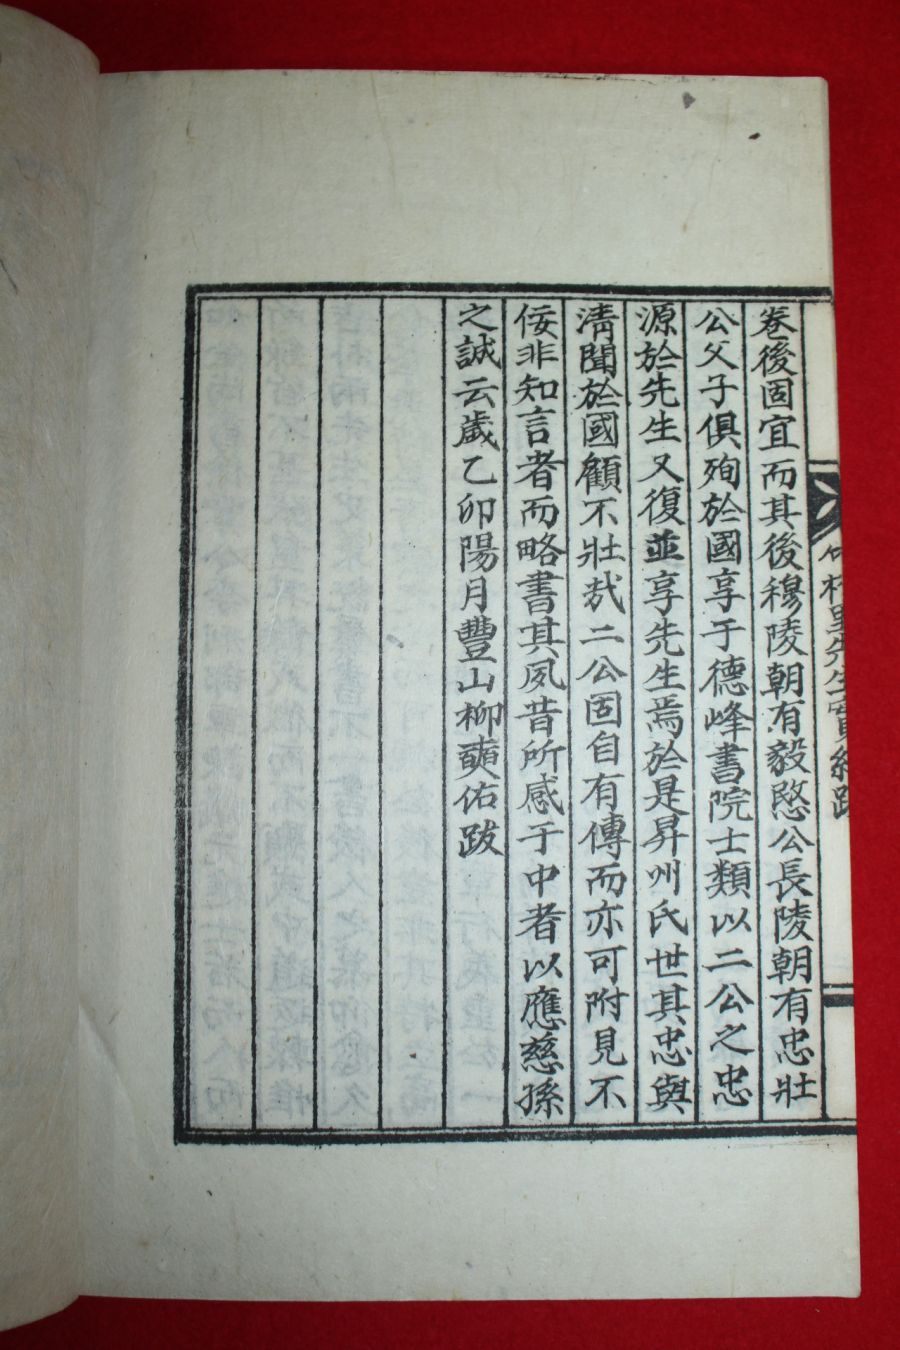 卷後固宜而其後穆陵朝有毅愍公長陵朝有忠壯
公父子俱殉於國享于德峰書院士類以二公之忠
源於先生又復並享先生焉於是昇州氏世其忠與
淸聞於國顧不壯哉二公固自有傳而亦可附見不
佞非知言者而略書其夙昔所感于中者以應慈孫
之誠云歲乙卯陽月豐山柳奭佑跋
里先生實紀跋